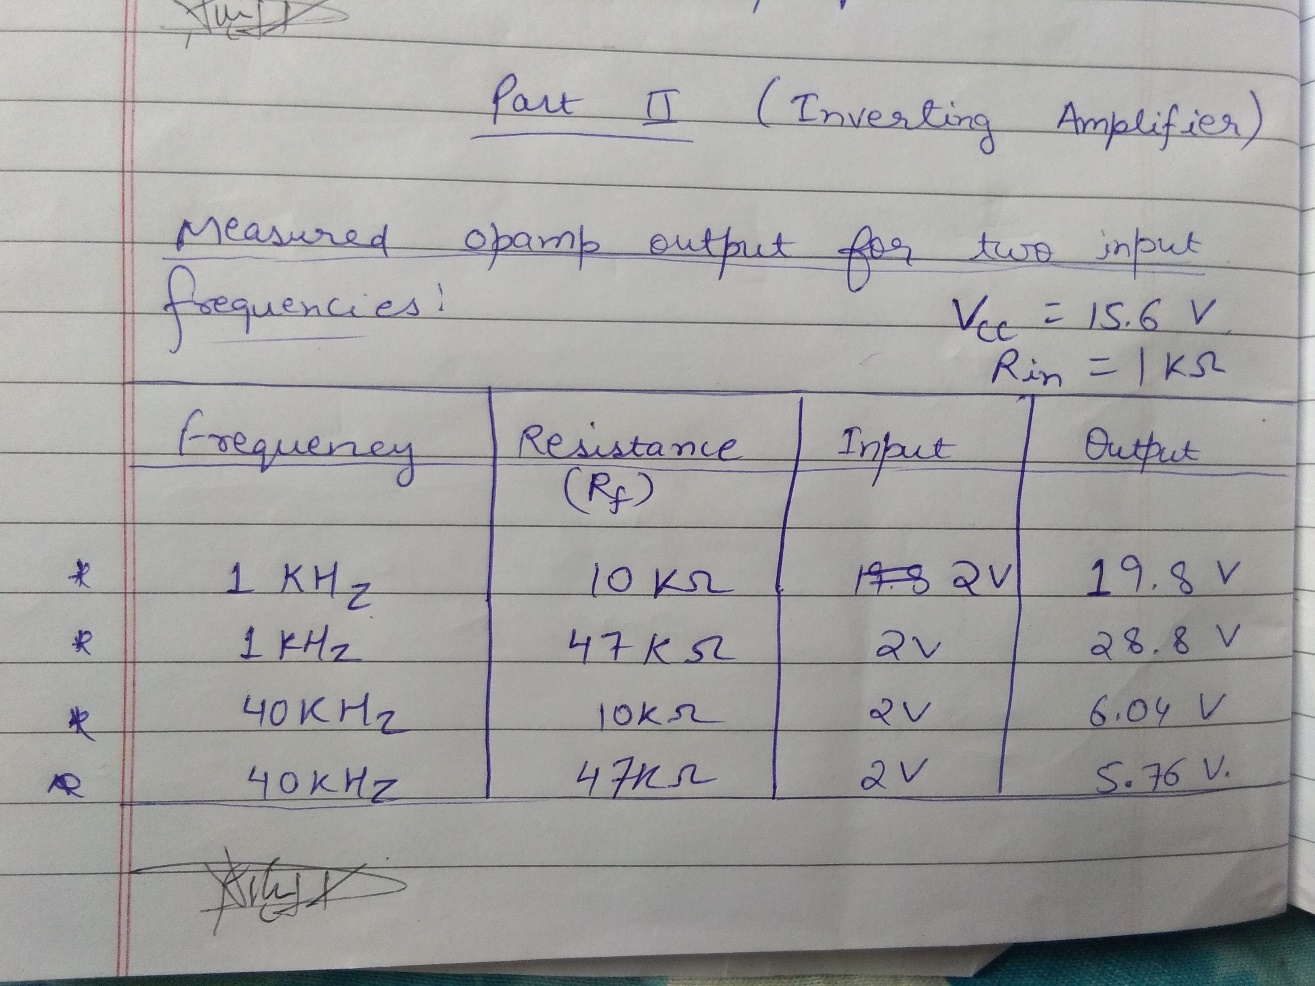 Part II (Inverting Amplifier)
Measured opamp output for two input
frequencies:
Vcc = 15.6 V
Rin = 1 KΩ
Frequency Resistance (Rf) Input Output
* 1 KHz 10 KΩ 2V 19.8 V
* 1 KHz 47 KΩ 2V 28.8 V
* 40 KHz 10KΩ 2V 6.04 V
* 40 KHz 47KΩ 2V 5.76 V.